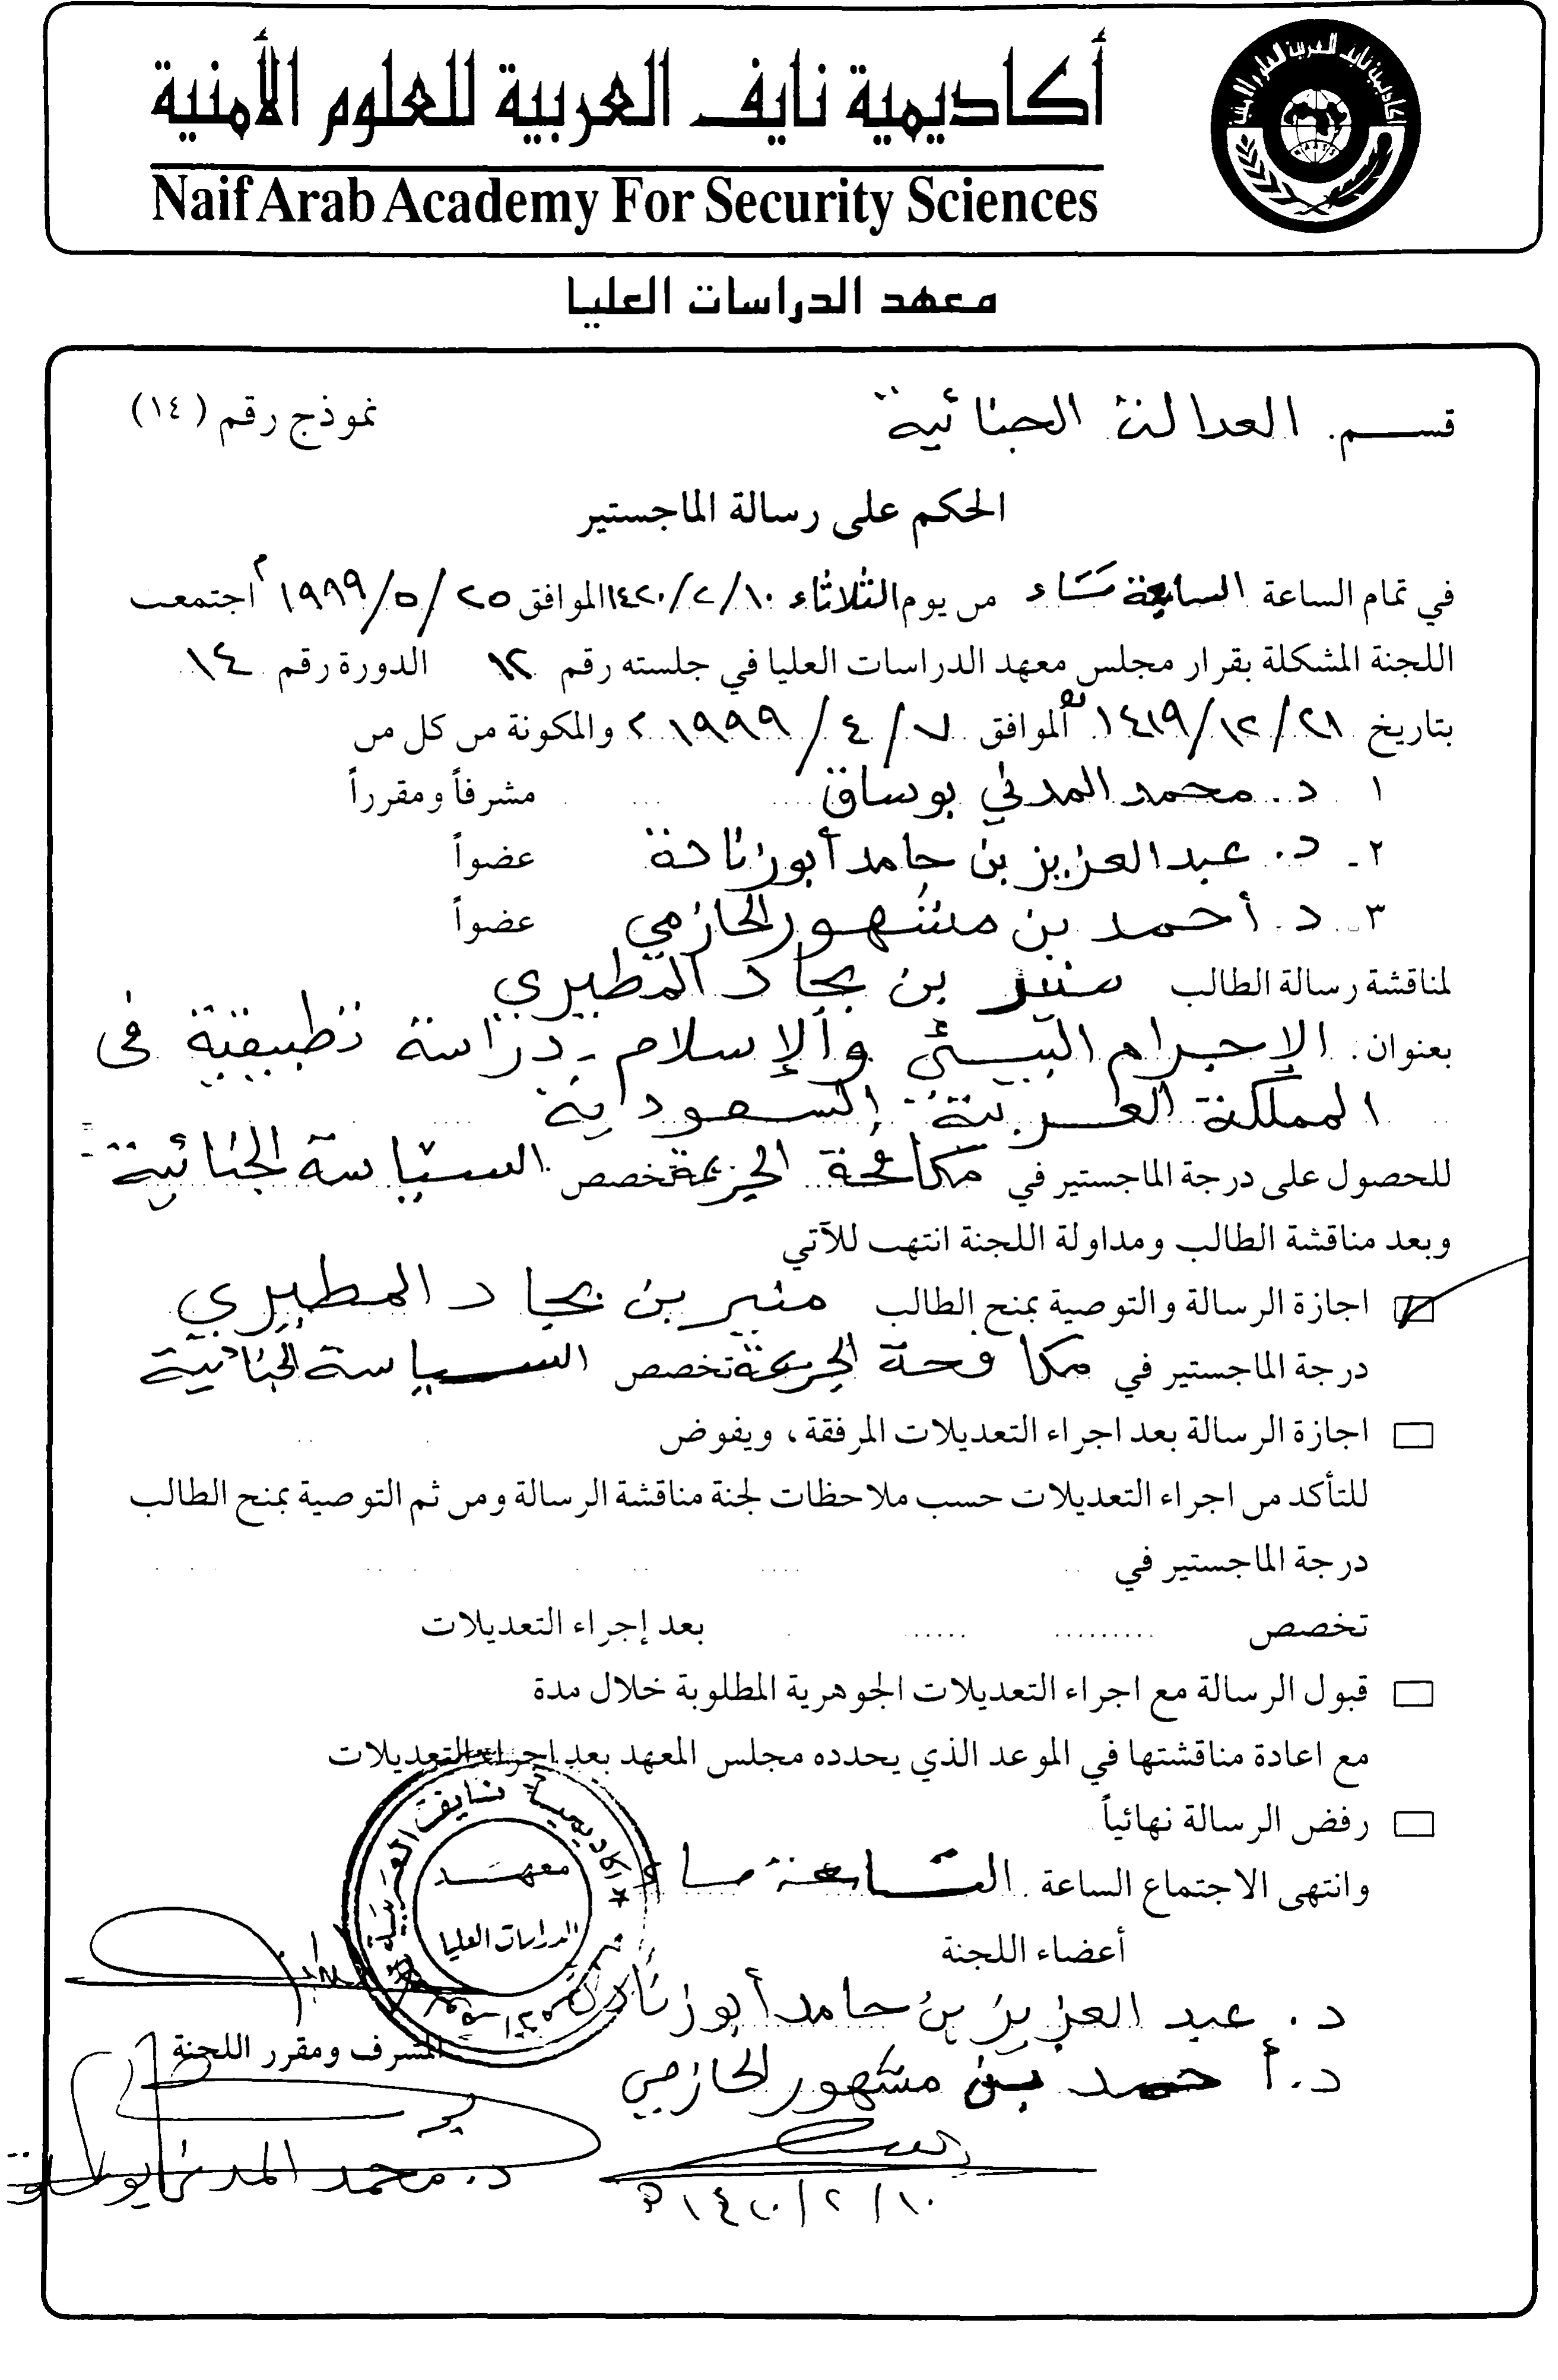 أكاديمية نايف العربية للعلوم الأمنية
Naif Arab Academy For Security Sciences
أكاديمية نايف العربية للعلوم الأمنية
معهد الدراسات العليا
قســم. العدالة الجنائية
نموذج رقم (١٤)
الحكم على رسالة الماجستير
في تمام الساعة السابعة مساء من يوم الثلاثاء ١٤٢٠/٢/١٠ الموافق ١٩٩٩/٥/٢٥م اجتمعت
اللجنة المشكلة بقرار مجلس معهد الدراسات العليا في جلسته رقم ١٢ الدورة رقم ١٤
بتاريخ ١٤١٩/١٢/٢١هـ الموافق ١٩٩٩/٤/٧م والمكونة من كل من
١ د. محمد المدني بوساق مشرفاً ومقرراً
٢- د. عبد العزيز بن حامد أبو زنادة عضواً
٣- د. أحمد بن مشهور الحازمي عضواً
لمناقشة رسالة الطالب منير بن بجاد المطيري
بعنوان. الإجرام البيئي والإسلام - دراسة تطبيقية في
المملكة العربية السعودية
للحصول على درجة الماجستير في مكافحة الجريمة تخصص السياسة الجنائية
وبعد مناقشة الطالب ومداولة اللجنة انتهت للآتي
اجازة الرسالة والتوصية بمنح الطالب منير بن بجاد المطيري
درجة الماجستير في مكافحة الجريمة تخصص السياسة الجنائية
اجازة الرسالة بعد اجراء التعديلات المرفقة، ويفوض
للتأكد من اجراء التعديلات حسب ملاحظات لجنة مناقشة الرسالة ومن ثم التوصية بمنح الطالب
درجة الماجستير في
تخصص بعد إجراء التعديلات
قبول الرسالة مع اجراء التعديلات الجوهرية المطلوبة خلال مدة
مع اعادة مناقشتها في الموعد الذي يحدده مجلس المعهد بعد اجراء التعديلات
رفض الرسالة نهائياً
وانتهى الاجتماع الساعة التاسعة مساء
اكاديمية نايف العربية
معهد
الدراسات العليا
أعضاء اللجنة
د. عبد العزيز بن حامد أبو زنادة
المشرف ومقرر اللجنة
د. أحمد بن مشهور الحازمي
د. محمد المدني بوساق
١٤٢٠/٢/١٠هـ